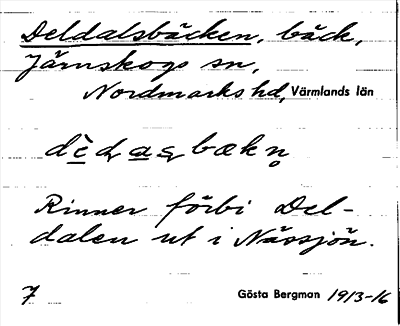 Deldalsbäcken, bäck,
Järnskogs sn,
Nordmarks hd, Värmlands län
Rinner förbi Del-
dalen ut i Nässjön.
7 Gösta Bergman 1913-16